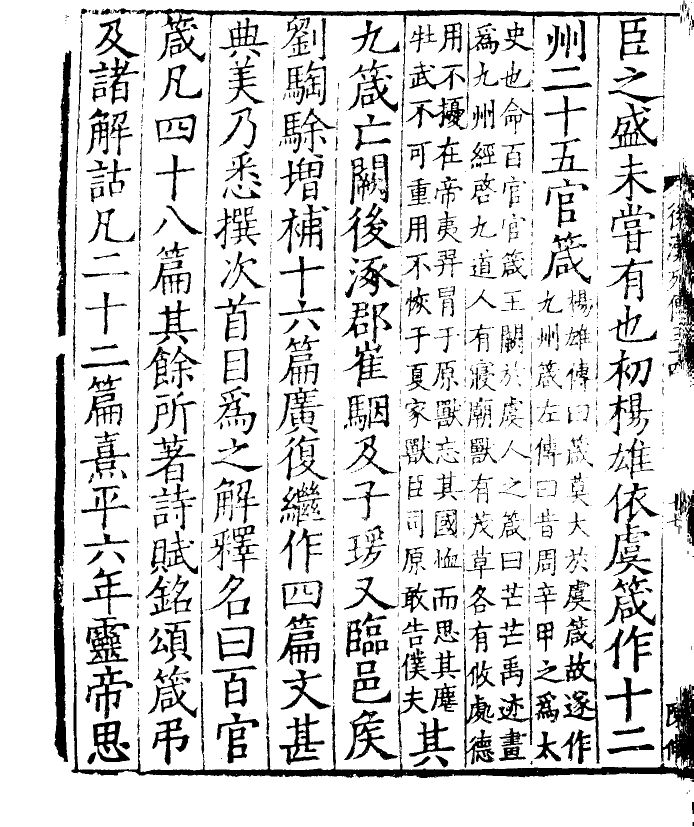 臣之盛未嘗有也初楊雄依虞箴作十二
州二十五官箴楊雄傳曰箴莫大於虞箴故遂作九州箴左傳曰昔周辛甲之為太
史也命百官官箴王闕於虞人之箴曰芒芒禹迹畫為九州經啓九道人有寢廟獸有茂草各有攸處德
用不擾在帝夷羿冒于原獸忘其國恤而思其麀牡武不可重用不恢于夏家獸臣司原敢告僕夫其
九箴亡闕後涿郡崔駰及子瑗又臨邑矦
劉騊駼增補十六篇廣復繼作四篇文甚
典美乃悉撰次首目爲之解釋名曰百官
箴凡四十八篇其餘所著詩賦銘頌箴弔
及諸解詁凡二十二篇熹平六年靈帝思